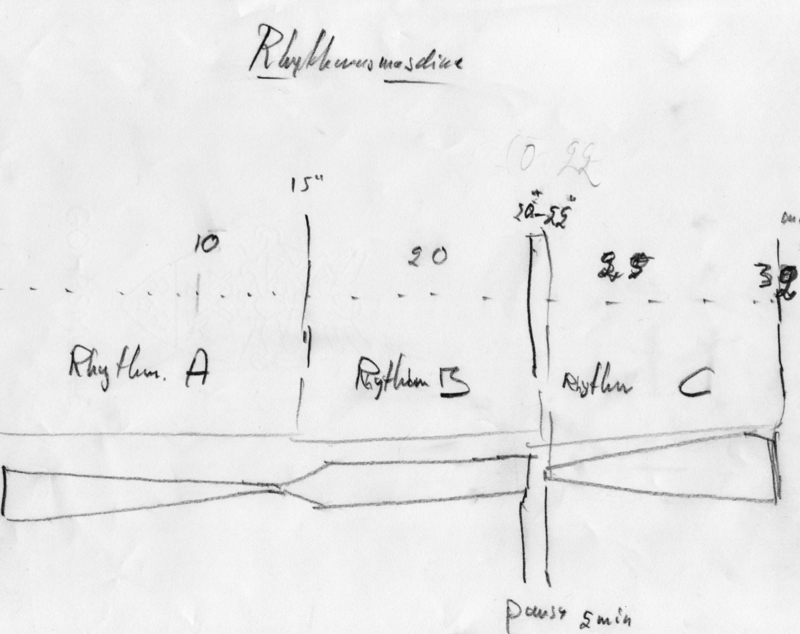 Rhythmusmaschine
15"
10
20
20"-22"
25
Rhythm. A
Rhythm B
Rhythm C
pause 2min